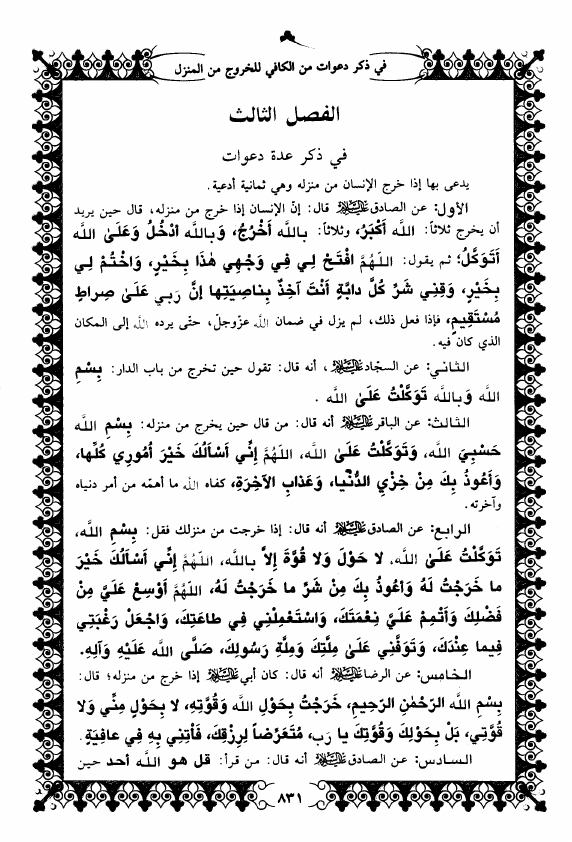 في ذكر دعوات من الكافي للخروج من المنزل
الفصل الثالث
في ذكر عدة دعوات
يدعى بها إذا خرج الإنسان من منزله وهي ثمانية أدعية.
الأول: عن الصادق عليه السلام قال: إنّ الإنسان إذا خرج من منزله، قال حين يريد
أن يخرج ثلاثاً: الله أَكْبَرُ، وثلاثاً: بالله أَخْرُجُ، وَبالله أَدْخُلُ وَعَلَىٰ الله
أَتَوَكَّلُ؛ ثم يقول: اللهُمَّ افْتَحْ لِي فِي وَجْهِي هٰذا بِخَيْرٍ، وَاخْتُمْ لِي
بِخَيْرٍ، وَقِنِي شَرَّ كُلِّ دابَّةٍ أَنْتَ آخِذٌ بِناصِيَتِها إنَّ رَبي عَلَىٰ صِراطٍ
مُسْتَقِيمٍ، فإذا فعل ذلك، لم يزل في ضمان الله عزّوجلّ، حتّى يرده الله إلى المكان
الذي كان فيه.
الثاني: عن السجّاد عليه السلام، أنه قال: تقول حين تخرج من باب الدار: بِسْمِ
الله وَبالله تَوَكَّلْتُ عَلَىٰ الله .
الثالث: عن الباقر عليه السلام أنه قال: من قال حين يخرج من منزله: بِسْمِ الله
حَسْبِيَ الله، وَتَوَكَّلْتُ عَلَىٰ الله، اللهُمَّ إِنِّي أَسْأَلُكَ خَيْرَ أُمُورِي كُلِّها،
وَأَعُوذُ بِكَ مِنْ خِزْيِ الدُّنْيا، وَعَذابِ الآخِرَةِ، كفاه الله ما أهمّه من أمر دنياه
وآخرته.
الرابع: عن الصادق عليه السلام أنه قال: إذا خرجت من منزلك فقل: بِسْمِ الله،
تَوَكَّلْتُ عَلَىٰ الله، لا حَوْلَ وَلا قُوَّةَ إِلاَّ بالله، اللهُمَّ إِنِّي أَسْأَلُكَ خَيْرَ
ما خَرَجْتُ لَهُ وَأَعُوذُ بِكَ مِنْ شَرِّ ما خَرَجْتُ لَهُ، اللهُمَّ أَوْسِعْ عَلَيَّ مِنْ
فَضْلِكَ وَأَتْمِمْ عَلَيَّ نِعْمَتَكَ، وَاسْتَعْمِلْنِي فِي طاعَتِكَ، وَاجْعَلْ رَغْبَتِي
فِيما عِنْدَكَ، وَتَوَفَّنِي عَلَىٰ مِلَّتِكَ وَمِلَّةِ رَسُولِكَ، صَلَّى الله عَلَيْهِ وَآلِهِ.
الخامس: عن الرضا عليه السلام أنه قال: كان أبي عليه السلام إذا خرج من منزله؛ قال:
بِسْمِ الله الرَّحْمٰنِ الرَّحِيمِ، خَرَجْتُ بِحَوْلِ الله وَقُوَّتِهِ، لا بِحَوْلٍ مِنِّي وَلا
قُوَّتِي، بَلْ بِحَوْلِكَ وَقُوَّتِكَ يا رَب، مُتَعَرِّضاً لِرِزْقِكَ، فَأْتِنِي بِهِ فِي عافِيَةٍ.
السادس: عن الصادق عليه السلام أنه قال: من قرأ: قل هو الله أحد حين
٨٣١